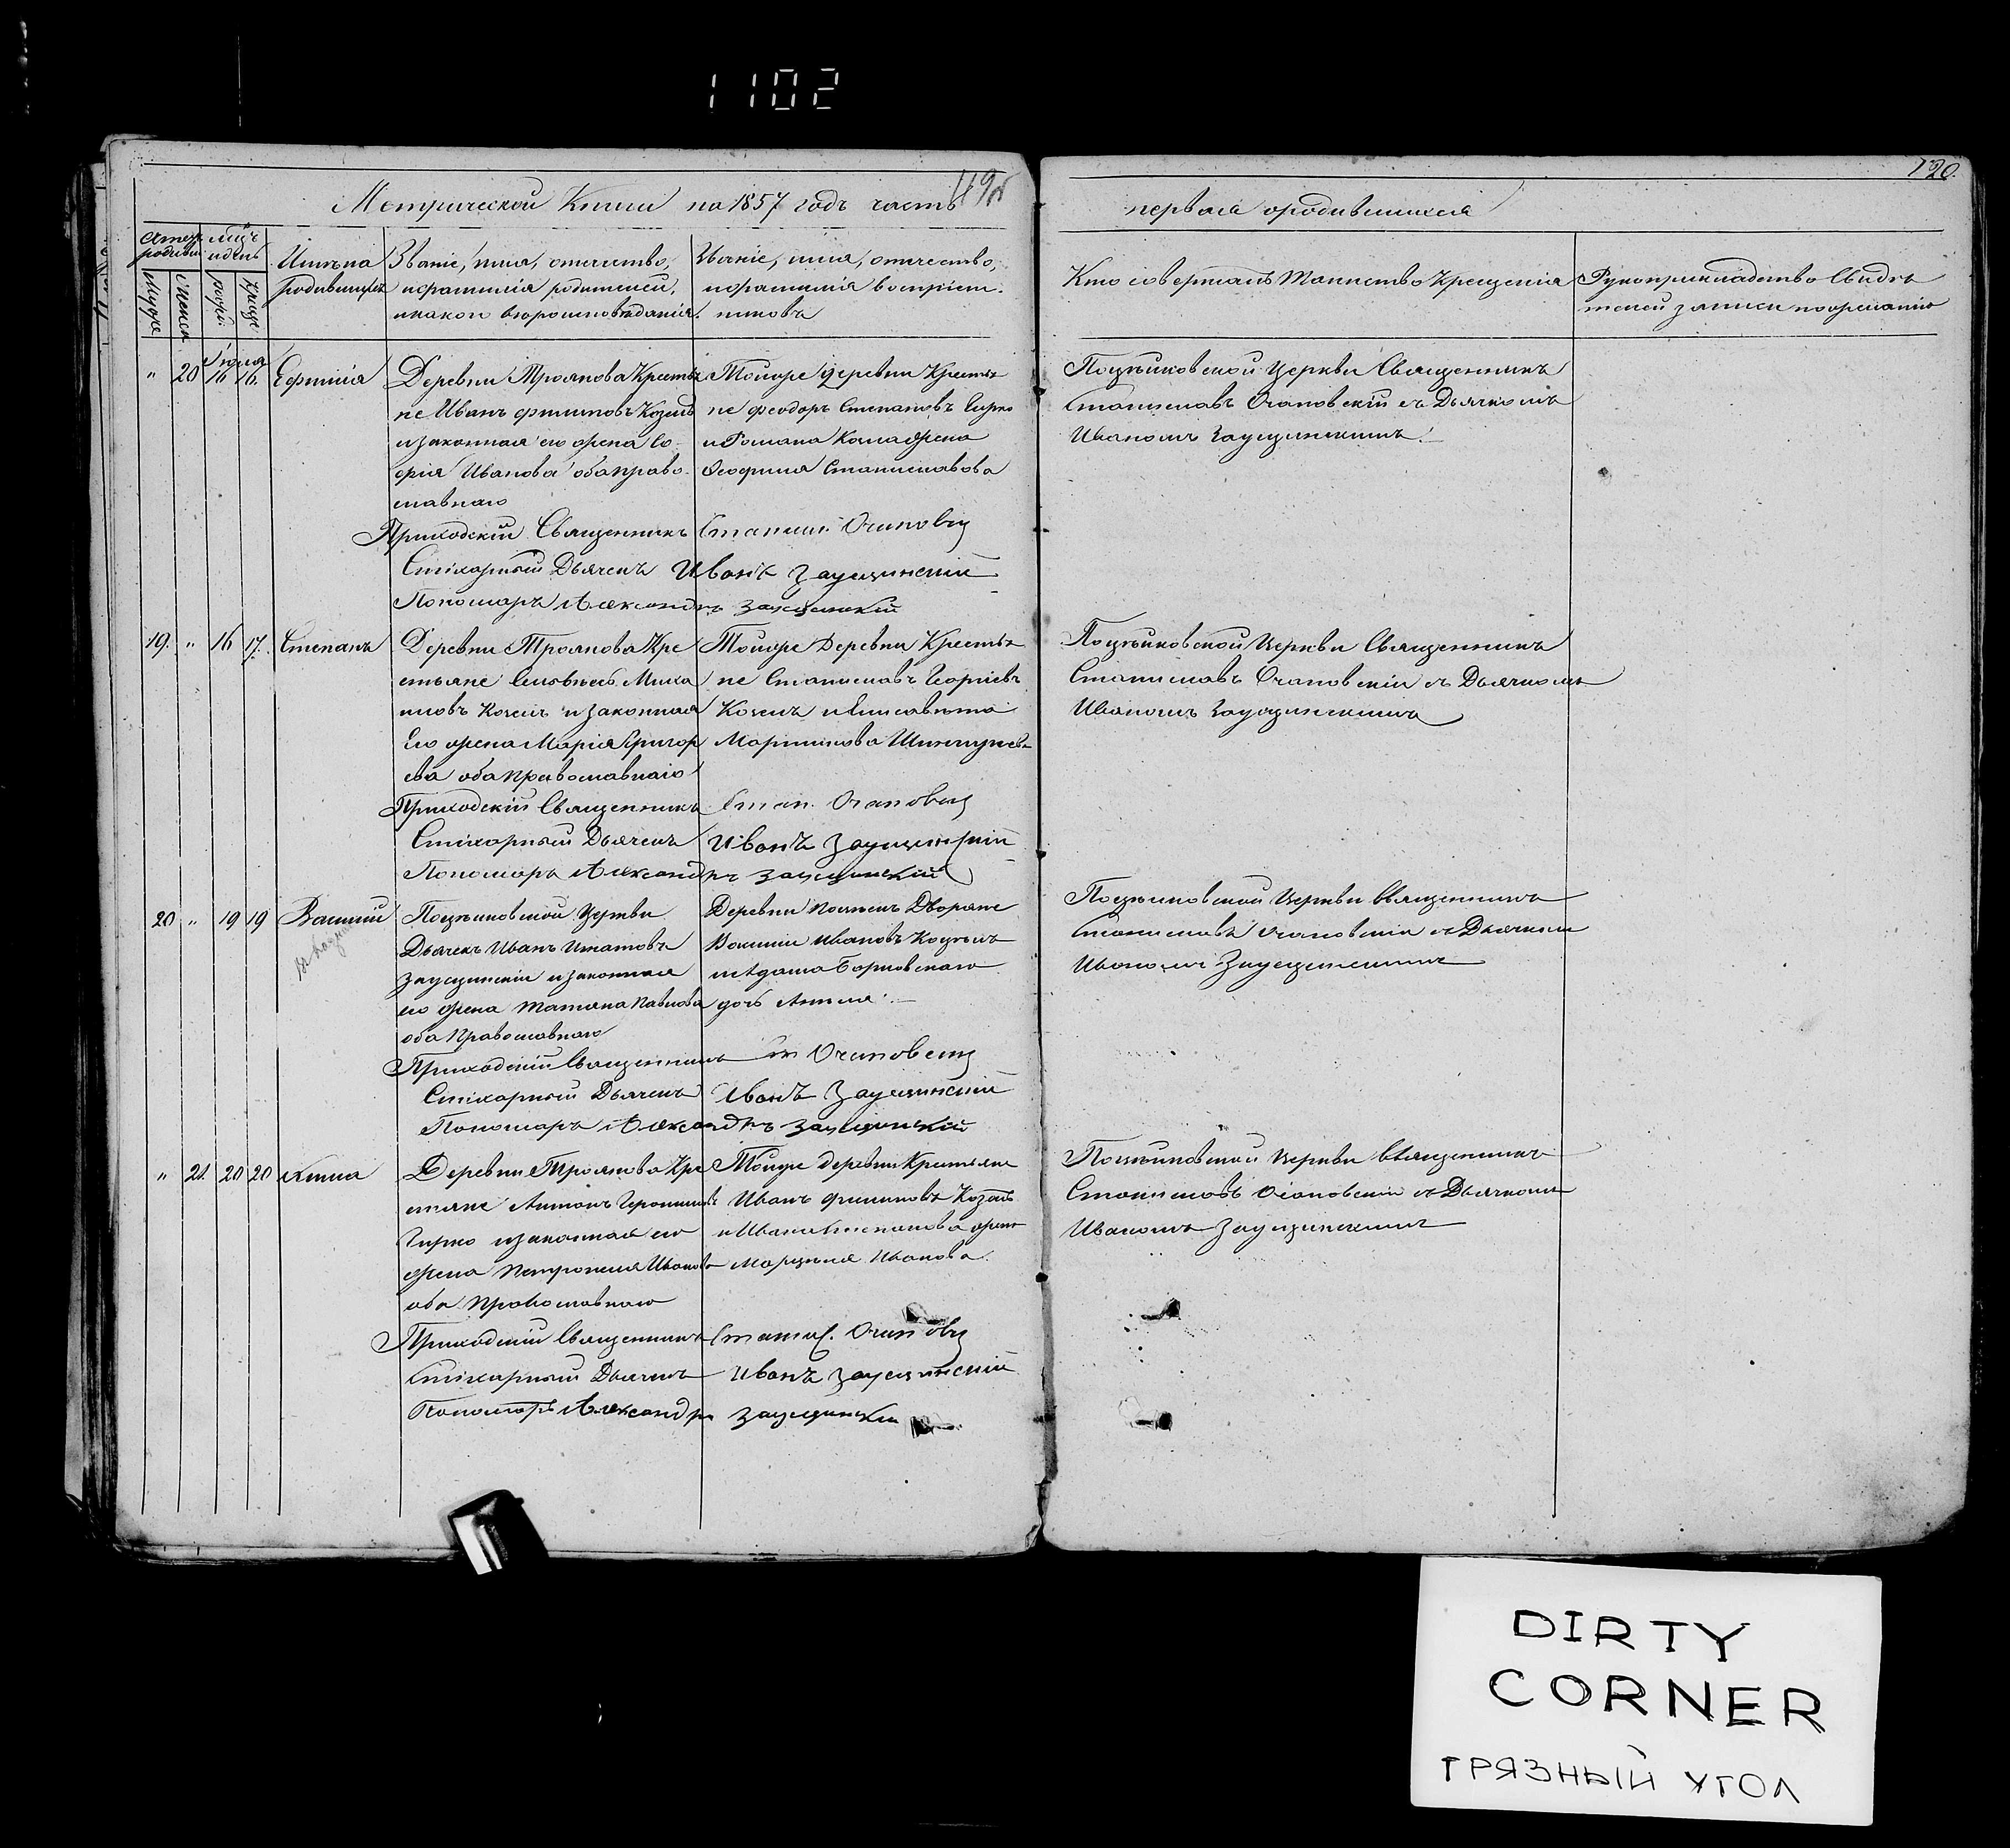 1102
119об
120.
Метрической Книги на 1857 годъ часть
первая о родившихся
Имѣна
родившихся
Званіе, имя, отчество,
и фамилія родителей,
и какого вѣроисповѣданія.
Званіе, имя, отчество,
и фамилія воспріем-
никовъ
Кто совершалъ Таинство Крещенія
Рукоприкладство свидѣ
телей записи по желанію
" 20 Іюля 16 16. Ефимія
Деревни Троянова Крестья
не Иванъ Филиповъ Козелъ
и законная его жена Со-
фія Иванова оба право-
славнаго
Тойже деревни Крестья
не Феодоръ Степановъ Гирко
и Романа жена
Феофила Станиславова
Священникъ
Станиславъ Очаповскій съ Дьячкомъ
Иваномъ Заусцинскимъ.
Приходскій Священникъ Станисл. Очаповскій
Стихарный Дьячекъ Иванъ Заусцинскій
Пономарь Александръ Заусцинскій
19. " 16 17. Степанъ
Деревни Троянова Кре
стьяне Миха
иловъ Козелъ и законная
Его жена Марія Григорь
ева оба Православнаго
Тойже Деревни Крестья
не Станиславъ Георгіевъ
Козелъ и Елисавѣта
Мартинова
Церкви Священникъ
Станиславъ Очаповскій съ Дьячкомъ
Иваномъ Заусцинскимъ
Приходскій Священникъ Стан. Очаповскій
Стихарный Дьячекъ Иванъ Заусцинскій
Пономарь Александръ Заусцинскій
20 " 19 19 Василій
Церкви
Дьячекъ Иванъ Игнатовъ
Заусцинскій и законная
его жена Татяна Павлова
оба Православнаго
Деревни Дворяне
Василій Ивановъ
и Адама Барковскаго
дочь Анеля.
Церкви Священникъ
Станиславъ Очаповскій съ Дьячкомъ
Иваномъ Заусцинскимъ
Приходскій Священникъ Ст Очаповскій
Стихарный Дьячекъ Иванъ Заусцинскій
Пономарь Александръ Заусцинскій
" 21. 20 20 Анна
Деревни Троянова Кре
стяне Антонъ
Гирко и законная его
жена Петронеля Иванова
оба Православнаго
Тойже деревни Крестьяне
Иванъ Филиповъ Козелъ
и Ивана Степанова жена
Марцеля Иванова.
Церкви Священникъ
Станиславъ Очаповскій съ Дьячкомъ
Иваномъ Заусцинскимъ
Приходскій Священникъ Станисл. Очаповскій
Стихарный Дьячекъ Иванъ Заусцинскій
Пономарь Александръ Заусцинскій
DIRTY
CORNER
ГРЯЗНЫЙ УГОЛ